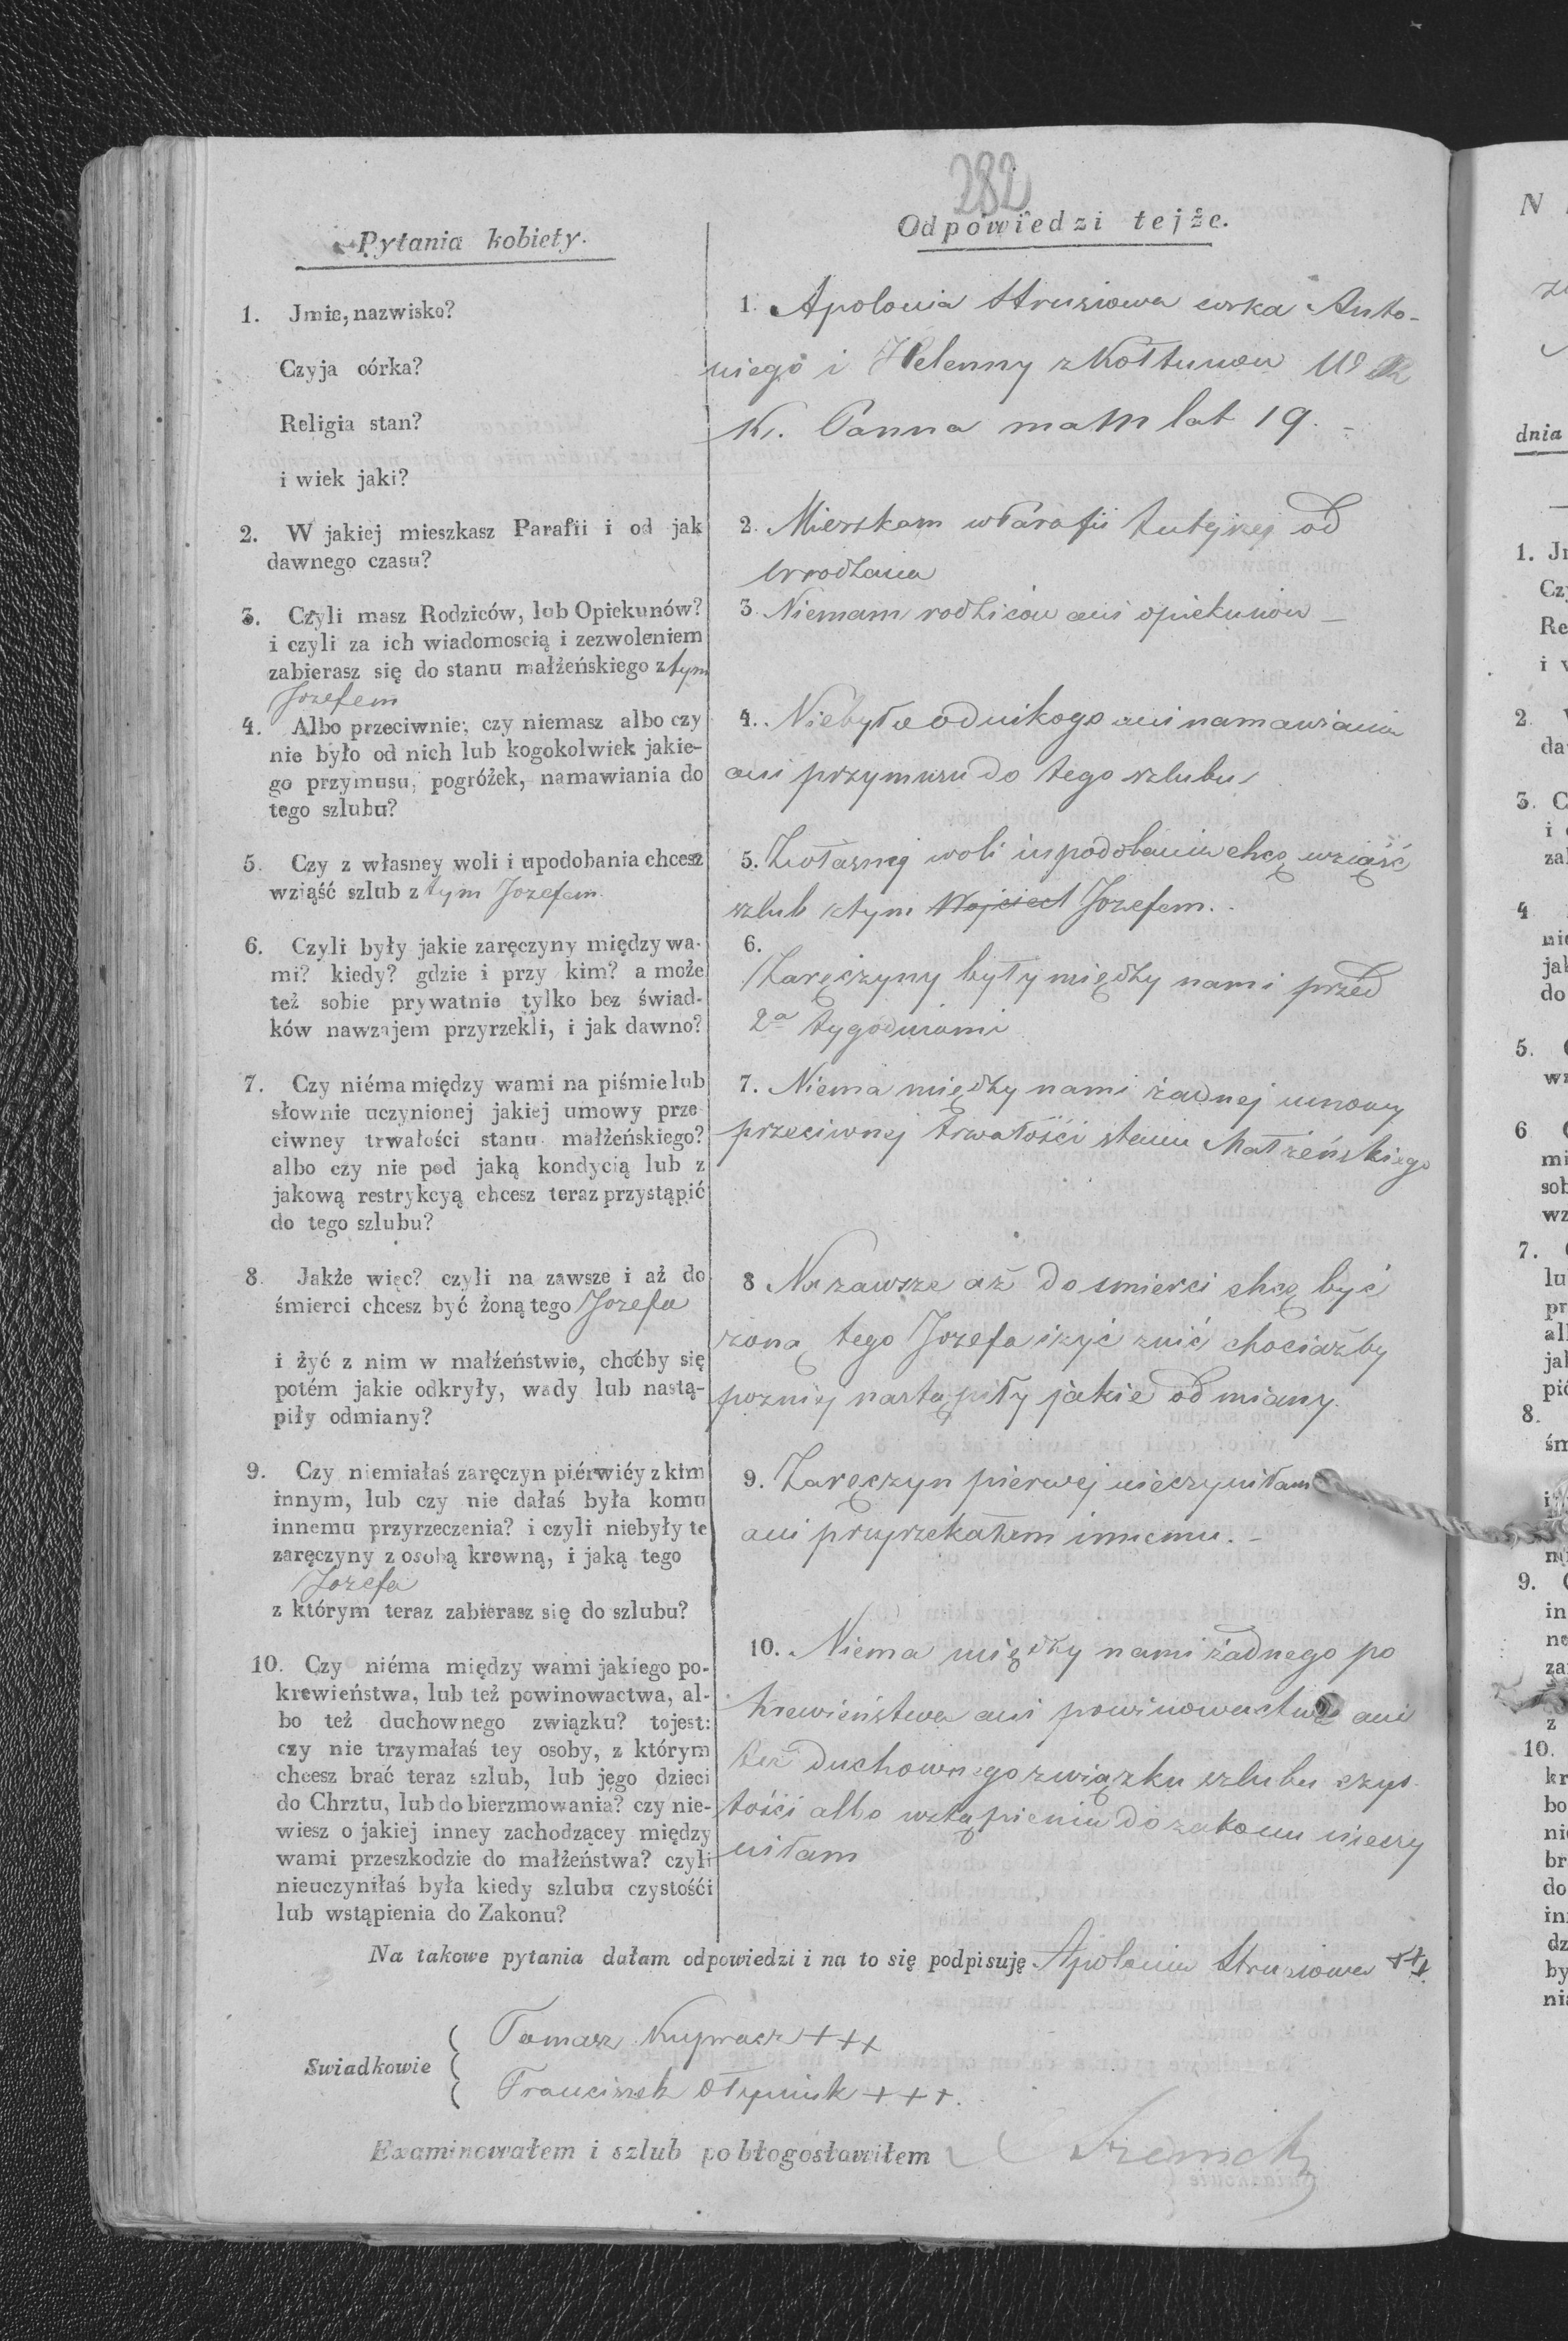 282
Pytania kobiety.
Odpowiedzi tejże.
1. Jmie, nazwisko?
Czyja córka?
Religia stan?
i wiek jaki?
1. Apolonia Strusiowa corka Anto-
niego i Helenny z Kołtunow
K. Panna mam lat 19. -
2. W jakiej mieszkasz Parafii i od jak
dawnego czasu?
2. Mieszkam w Parafii tutejszej od
urodzenia
3. Czyli masz Rodziców, lub Opiekunów?
i czyli za ich wiadomoscią i zezwoleniem
zabierasz się do stanu małżeńskiego z tym
Jozefem
3. Niemam rodziców ani opiekunów -
4. Albo przeciwnie; czy niemasz albo czy
nie było od nich lub kogokolwiek jakie-
go przymusu, pogróżek, namawiania do
tego szlubu?
4. Niebyło od nikogo ani namawiania
ani przymusu do tego szlubu
5. Czy z własney woli i upodobania chcesz
wziąść szlub z tym Jozefem.
5. Zwłasnej woli iupodobania chcę wziąść
szlub ztym Wojciech Jozefem.
6. Czyli były jakie zaręczyny między wa-
mi? kiedy? gdzie i przy kim? a może
też sobie prywatnie tylko bez świad-
ków nawzajem przyrzekli, i jak dawno?
6.
Zaręczyny były między nami przed
2a tygodniami
7. Czy niéma między wami na piśmie lub
słownie uczynionej jakiej umowy prze
ciwney trwałości stanu małżeńskiego?
albo czy nie pod jaką kondycią lub z
jakową restrykcyą chcesz teraz przystąpić
do tego szlubu?
7. Niema między nami żadnej umowy
przeciwnej trwałości stanu Małżeńskiego
8. Jakże więc? czyli na zawsze i aż do
śmierci chcesz być żoną tego Jozefa
i żyć z nim w małżeństwie, choćby się
potém jakie odkryły, wady lub nastą-
piły odmiany?
8 Na zawsze aż do smierci chcę być
zoną tego Jozefa izyć znić chociażby
pozniej nastąpiły jakie odmiany.
9. Czy niemiałaś zaręczyn piérwiéy z kim
innym, lub czy nie dałaś była komu
innemu przyrzeczenia? i czyli niebyły te
zaręczyny z osobą krewną, i jaką tego
Jozefa
z którym teraz zabierasz się do szlubu?
9. Zaręczyn pierwej nieczyniłam
ani przyrzekałam innemu. -
10. Czy niéma między wami jakiego po-
krewieństwa, lub też powinowactwa, al-
bo też duchownego związku? tojest:
czy nie trzymałaś tey osoby, z którym
chcesz brać teraz szlub, lub jego dzieci
do Chrztu, lub do bierzmowania? czy nie-
wiesz o jakiej inney zachodzącey między
wami przeszkodzie do małżeństwa? czyli
nieuczyniłaś była kiedy szlubu czystośći
lub wstąpienia do Zakonu?
10. Niema między nami żadnego po
krewieństwa ani powinowactwa ani
też duchownego związku szlubu czys-
tości albo wstąpieniu do zakonu nieczy
niłam
Na takowe pytania dałam odpowiedzi i na to się podpisuję Apolonia Strusiowa +++
Swiadkowie
Tomasz Kuprasz +++
Franciszek Ołyniuk +++.
Examinowałem i szlub pobłogosławiłem
N
dnia
1. J
Cz
Re
i w
2.
da
3. C
i
za
4
nie
jak
do
5.
wz
6
mi
sob
wz
7.
lu
pr
al
jak
pić
8.
śm
9.
in
ne
za
z
10.
kr
bo
ni
br
do
in
dz
by
ni